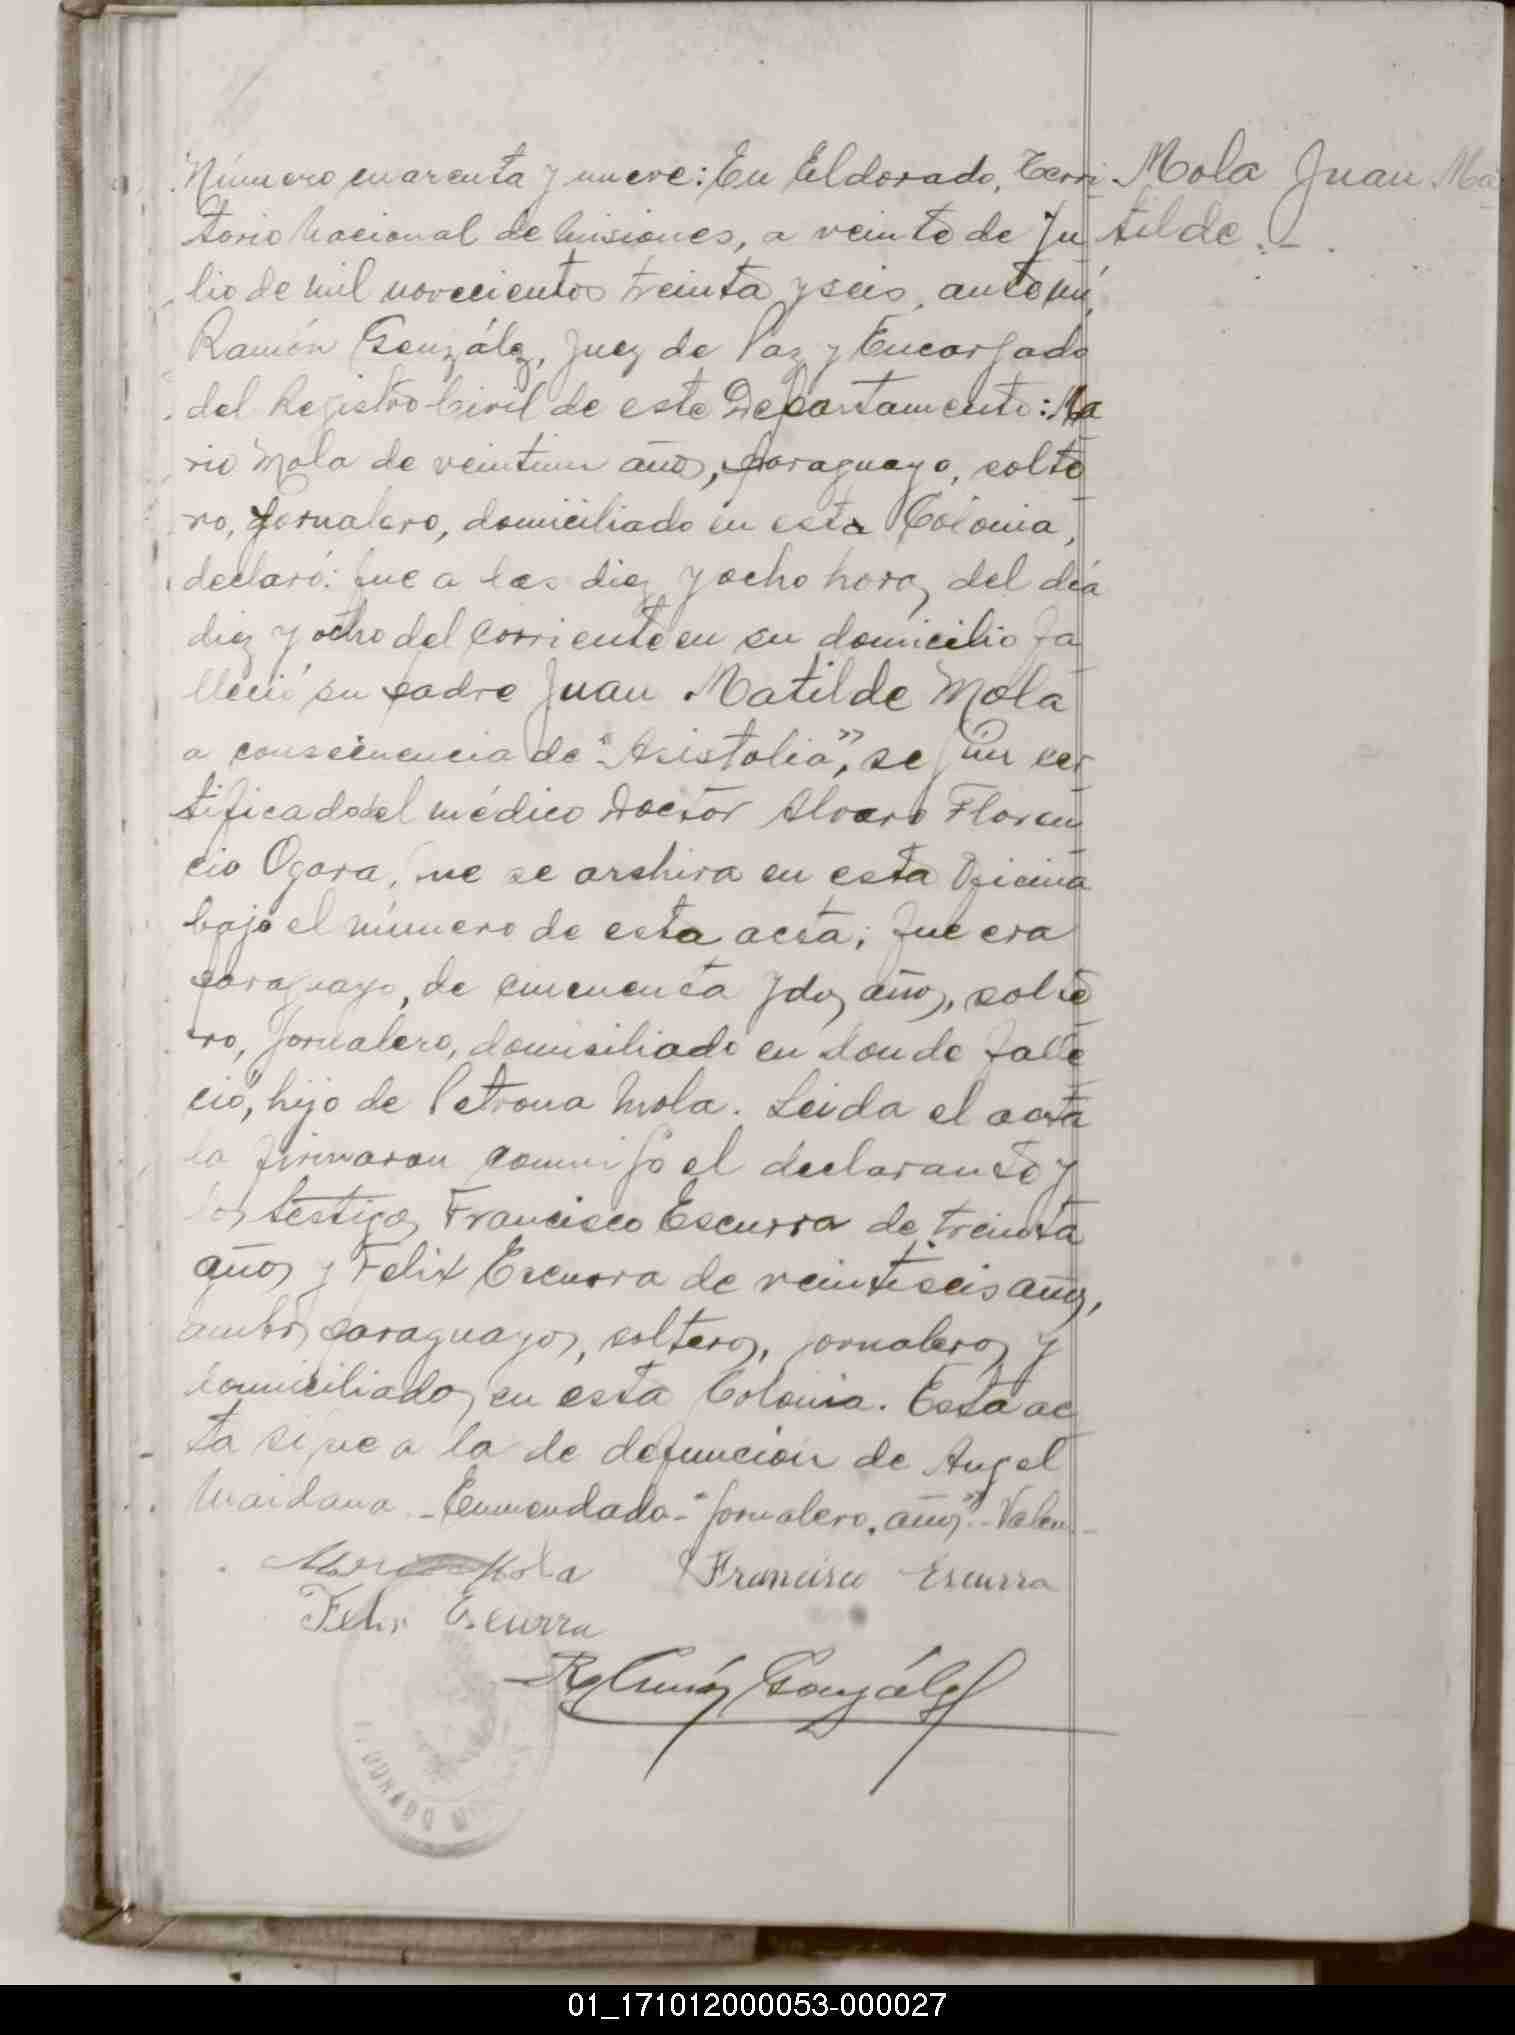 Número cuarenta y nueve: En Eldorado, Terri
torio Nacional de Misiones, a veinte de Ju
lio de mil novecientos treinta y seis, ante mí,
Ramón González, Juez de Paz y Encargado
del Registro Civil de este Departamento: Ma
rio Mola de veintiun años, paraguayo, solte
ro, jornalero, domiciliado en esta Colonia,
declaró: Que a las diez y ocho horas del día
diez y ocho del corriente en su domicilio fa
lleció su padre Juan Matilde Mola
a consecuencia de "Asistolia", según cer
tificado del médico Doctor Alvaro Floren
cio Ogara, que se archiva en esta Oficina
bajo el número de esta acta; que era
paraguayo, de cincuenta y dos años, solte
ro, jornalero, domisiliado en donde falle
ció, hijo de Petrona Mola. Leida el acta
la firmaron conmigo el declarante y
los testigos Francisco Escurra de treinta
años y Felix Escurra de veintiseis años,
ambos paraguayos, solteros, jornaleros y
domiciliados en esta Colonia. Esta ac
ta sigue a la de defunción de Angel
Maidana - Enmendado - "jornalero, años" - Valen.-
Mario Mola Francisco Escurra
Felix Escurra
Ramón González
Mola Juan Ma
tilde.-
01_171012000053-000027